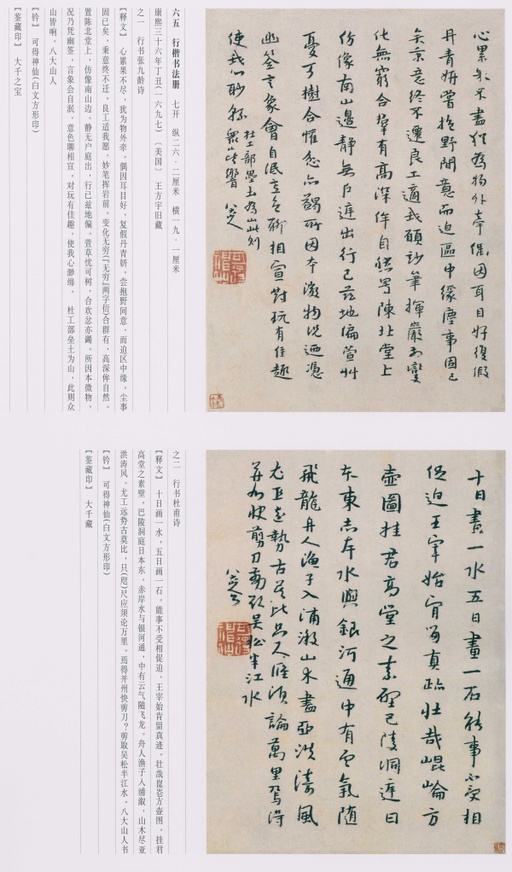 心累果不盡猶為物外牽偶因耳目好復假
丹青妍嘗抱野閒意而迫區中緣塵事固已
矣秉意終不遷良工適我願妙筆揮巖前變
化無窮合羣有高深侔自然置陳北堂上
仿像南山邊靜無戶庭出行已茲地偏萱艸
憂可樹合懽忿亦蠲所因本微物況迺憑
幽筌言象會自泯意色聊相宣對玩有佳趣
使我心眇緜
杜工部壘土為山此則
衆山皆響 八大山人
可得神仙
六五 行楷书法册 七开 纵二六·二厘米 横一九·一厘米
康熙三十六年丁丑(一六九七) 〔美国〕 王方宇旧藏
之一 行书张九龄诗
【释文】 心累果不尽,犹为物外牵。偶因耳目好,复假丹青妍。尝抱野间意,而迫区中缘。尘事
固已矣,秉意终不迁。良工适我愿,妙笔挥岩前。变化无穷(『无穷』两字倍)合群有,高深侔自然。
置陈北堂上,仿像南山边。静无户庭出,行已兹地偏。萱草忧可树,合欢忿亦蠲。所因本微物,
况乃凭幽筌。言象会自泯,意色聊相宣。对玩有佳趣,使我心渺绵。 杜工部垒土为山,此则众
山皆响。八大山人
【钤】 可得神仙(白文方形印)
【鉴藏印】 大千之宝
十日畫一水五日畫一石能事不受相
促迫王宰始肯留真跡壯哉崐崙方
壺圖挂君高堂之素壁巴陵洞庭日
本東赤岸水與銀河通中有雲氣隨
飛龍舟人漁子入浦漵山木盡亞洪濤風
尤工遠勢古莫比只尺應須論萬里焉得
并州快剪刀剪取吳松半江水
八大山人
可得神仙
之二 行书杜甫诗
【释文】 十日画一水,五日画一石。能事不受相促迫,王宰始肯留真迹。壮哉昆仑方壶图,挂君
高堂之素壁。巴陵洞庭日本东,赤岸水与银河通,中有云气随飞龙。舟人渔子入浦溆,山木尽亚
洪涛风。尤工远势古莫比,只(咫)尺应须论万里。焉得并州快剪刀?剪取吴松半江水。八大山人书
【钤】 可得神仙(白文方形印)
【鉴藏印】 大千藏